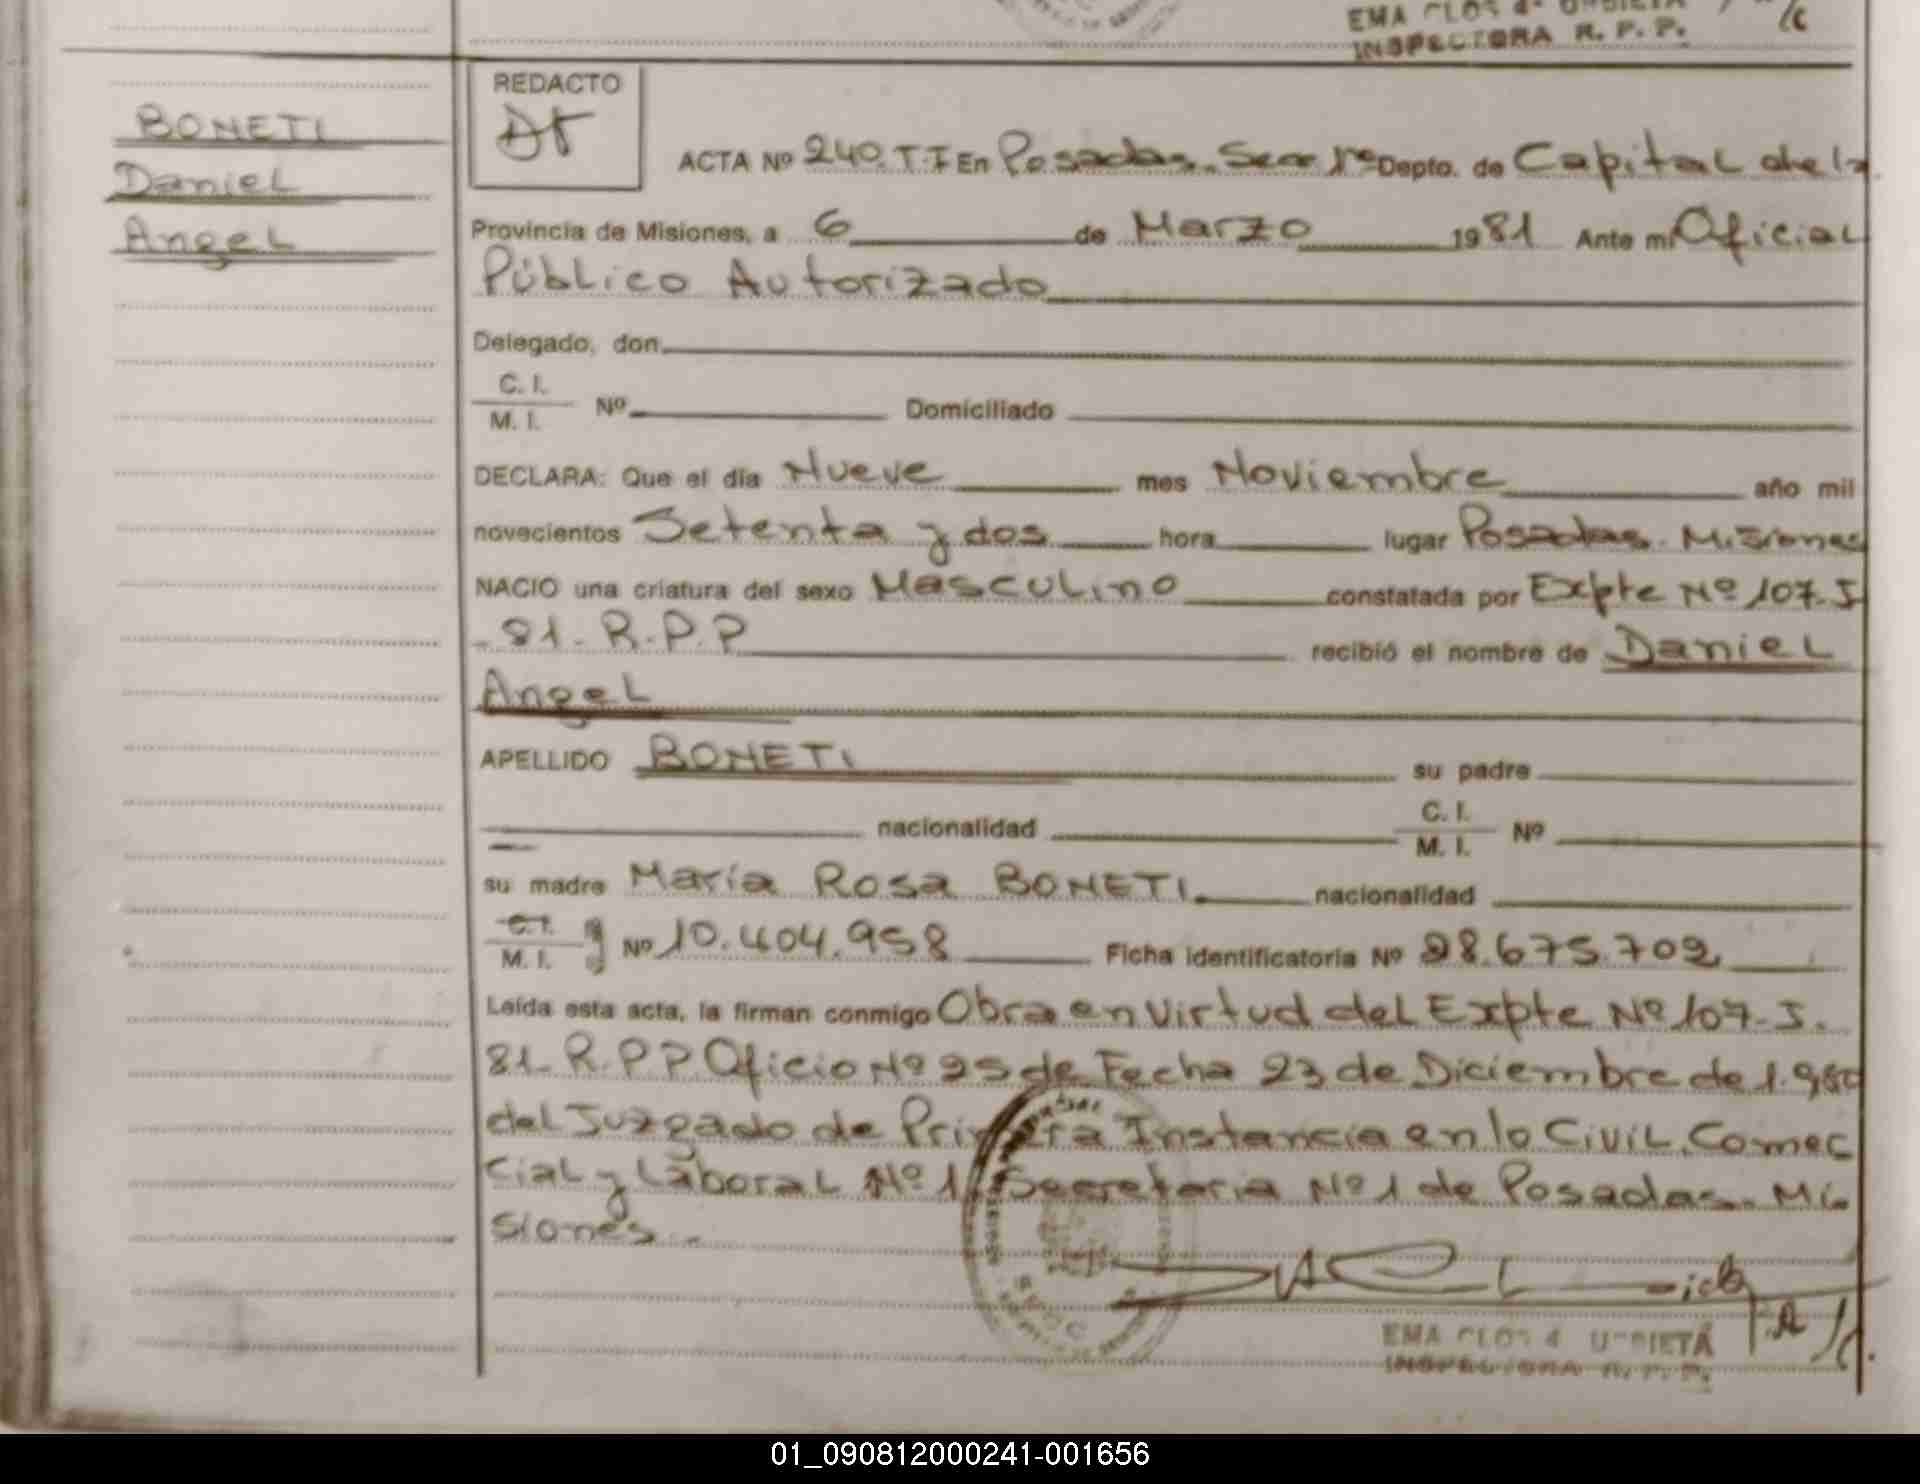 INSPECTORA R. P. P.
BONETI
Daniel
Angel
REDACTO
ACTA Nº 240. T. I En Posadas. Secc 1ª Depto. de Capital de la
Provincia de Misiones, a 6 de Marzo 1981 Ante mi Oficial
Público Autorizado
Delegado, don
C. I.
M. I. Nº Domiciliado
DECLARA: Que el día Nueve mes Noviembre año mil
novecientos Setenta y dos hora lugar Posadas. Misiones
NACIO una criatura del sexo Masculino constatada por Expte Nº 107-J
-81-R.P.P recibió el nombre de Daniel
Angel
APELLIDO BONETI su padre
nacionalidad C. I.
M. I. Nº
su madre María Rosa BONETI nacionalidad
C. I.
M. I. Nº 10.404.958 Ficha identificatoria Nº 28.675.702
Leída esta acta, la firman conmigo Obra en virtud del Expte Nº 107-J.
81-R.P.P Oficio Nº 25 de Fecha 23 de Diciembre de 1.980
del Juzgado de Primera Instancia en lo Civil, Comec
cial y Laboral Nº 1 Secretaria Nº 1 de Posadas. Mi
siones.
EMA
INSPECTORA R. P. P.
01_090812000241-001656